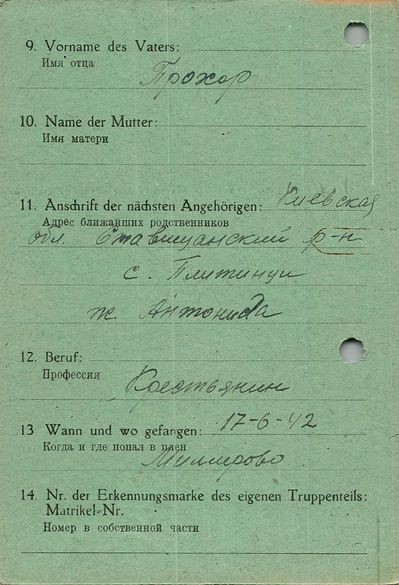 9. Vorname des Vaters:
Имя отца
Прохор
10. Name der Mutter:
Имя матери
11. Anschrift der nächsten Angehörigen: Киевская
Адрес ближайших родственников
обл. Ставищанский р-н
с.
ж. Антонида
12. Beruf:
Профессия
Крестьянин
13 Wann und wo gefangen: 17-6-42
Когда и где попал в плен
Миллерово
14. Nr. der Erkennungsmarke des eigenen Truppenteils:
Matrikel-Nr.
Номер в собственной части